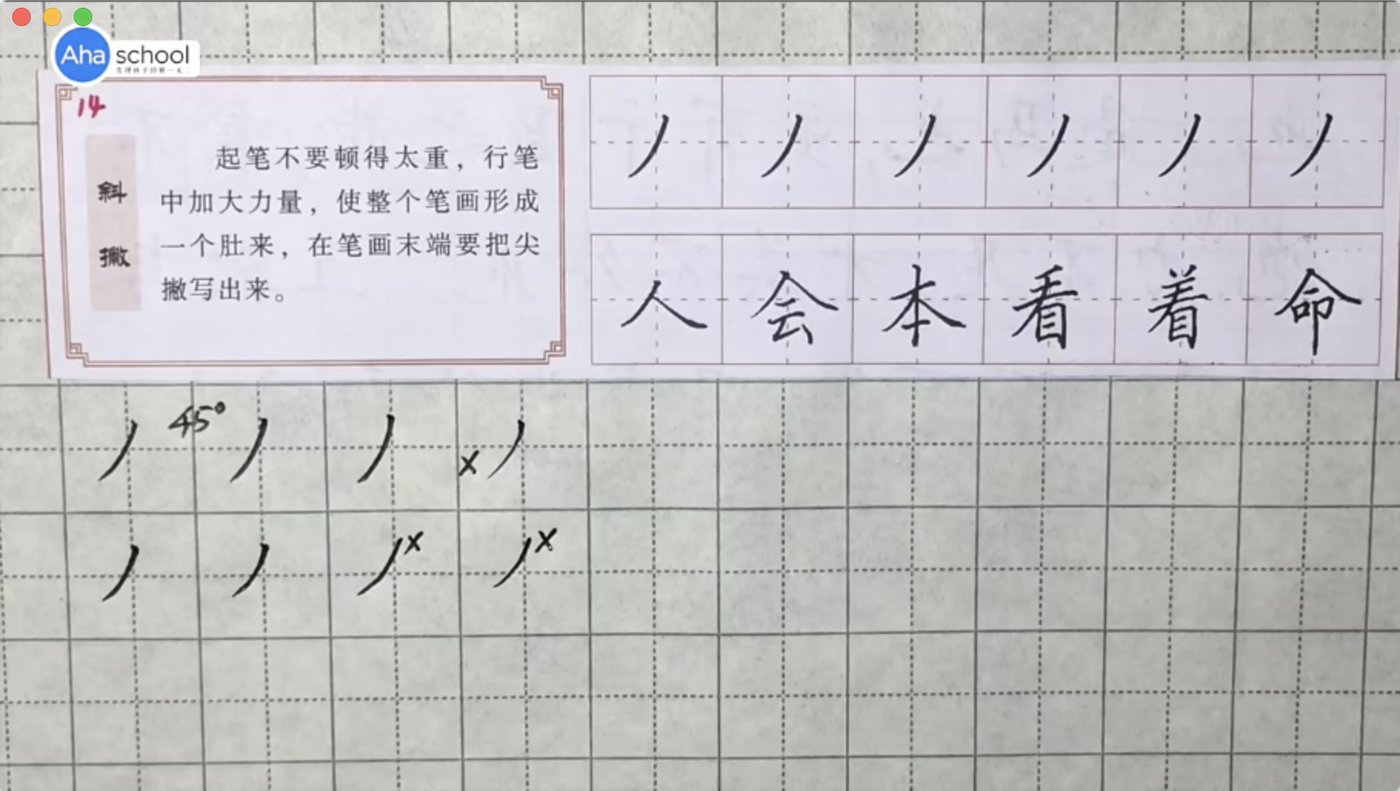 Aha school
14
斜撇
起笔不要顿得太重，行笔
中加大力量，使整个笔画形成
一个肚来，在笔画末端要把尖
撇写出来。
丿 丿 丿 丿 丿 丿
人 会 本 看 着 命
丿 45° 丿 丿 x 丿
丿 丿 丿 x 丿 x